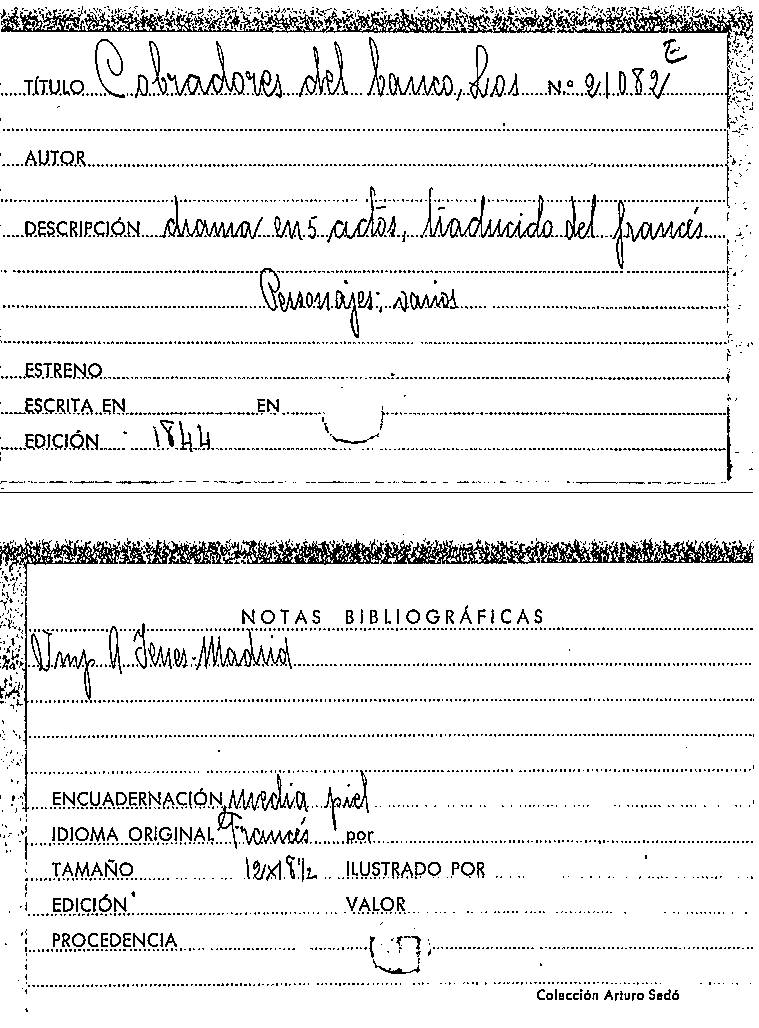 TÍTULO Cobradores del banco, Los N.º 21082 E
AUTOR
DESCRIPCIÓN drama en 5 actos, traducido del francés
Personajes: varios
ESTRENO
ESCRITA EN EN
EDICIÓN 1844
NOTAS BIBLIOGRÁFICAS
Imp. A Yenes-Madrid
ENCUADERNACIÓN media piel
IDIOMA ORIGINAL Francés por
TAMAÑO 12x18½ ILUSTRADO POR
EDICIÓN VALOR
PROCEDENCIA
Colección Arturo Sedó